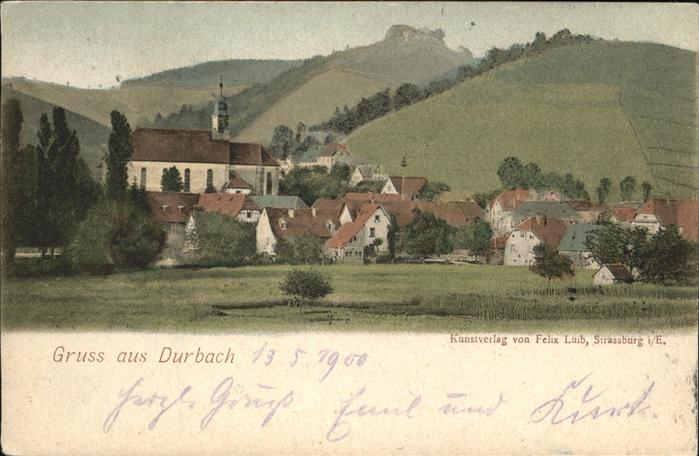 Kunstverlag von Felix Luib, Strassburg i/E.
Gruss aus Durbach 13.5.1900
Herzl. Gruß Emil und Kurt.